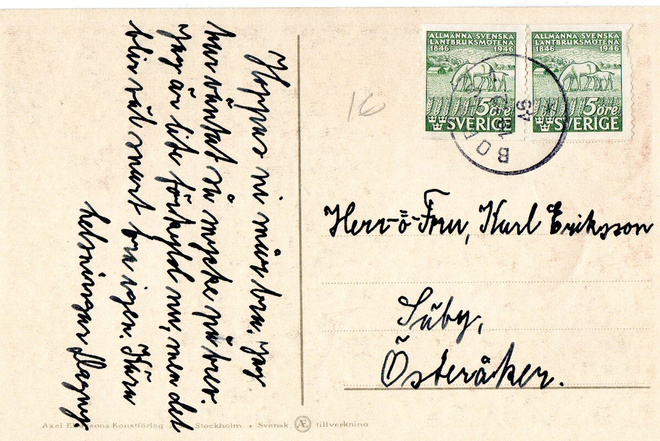 Hoppas ni mår bra. Jag
har väntat så mycke på brev.
Jag är lite förkyld nu, men det
blir väl snart bra igen. Kära
helsningar Dagny
16
ALLMÄNNA SVENSKA
LANTBRUKSMÖTENA
1846 1946
5 öre
SVERIGE
ALLMÄNNA SVENSKA
LANTBRUKSMÖTENA
1846 1946
5 öre
SVERIGE
Herr o Fru, Karl Eriksson
Säby,
Österåker.
Axel Eliassons Konstförlag Æ Stockholm • Svensk Æ tillverkning